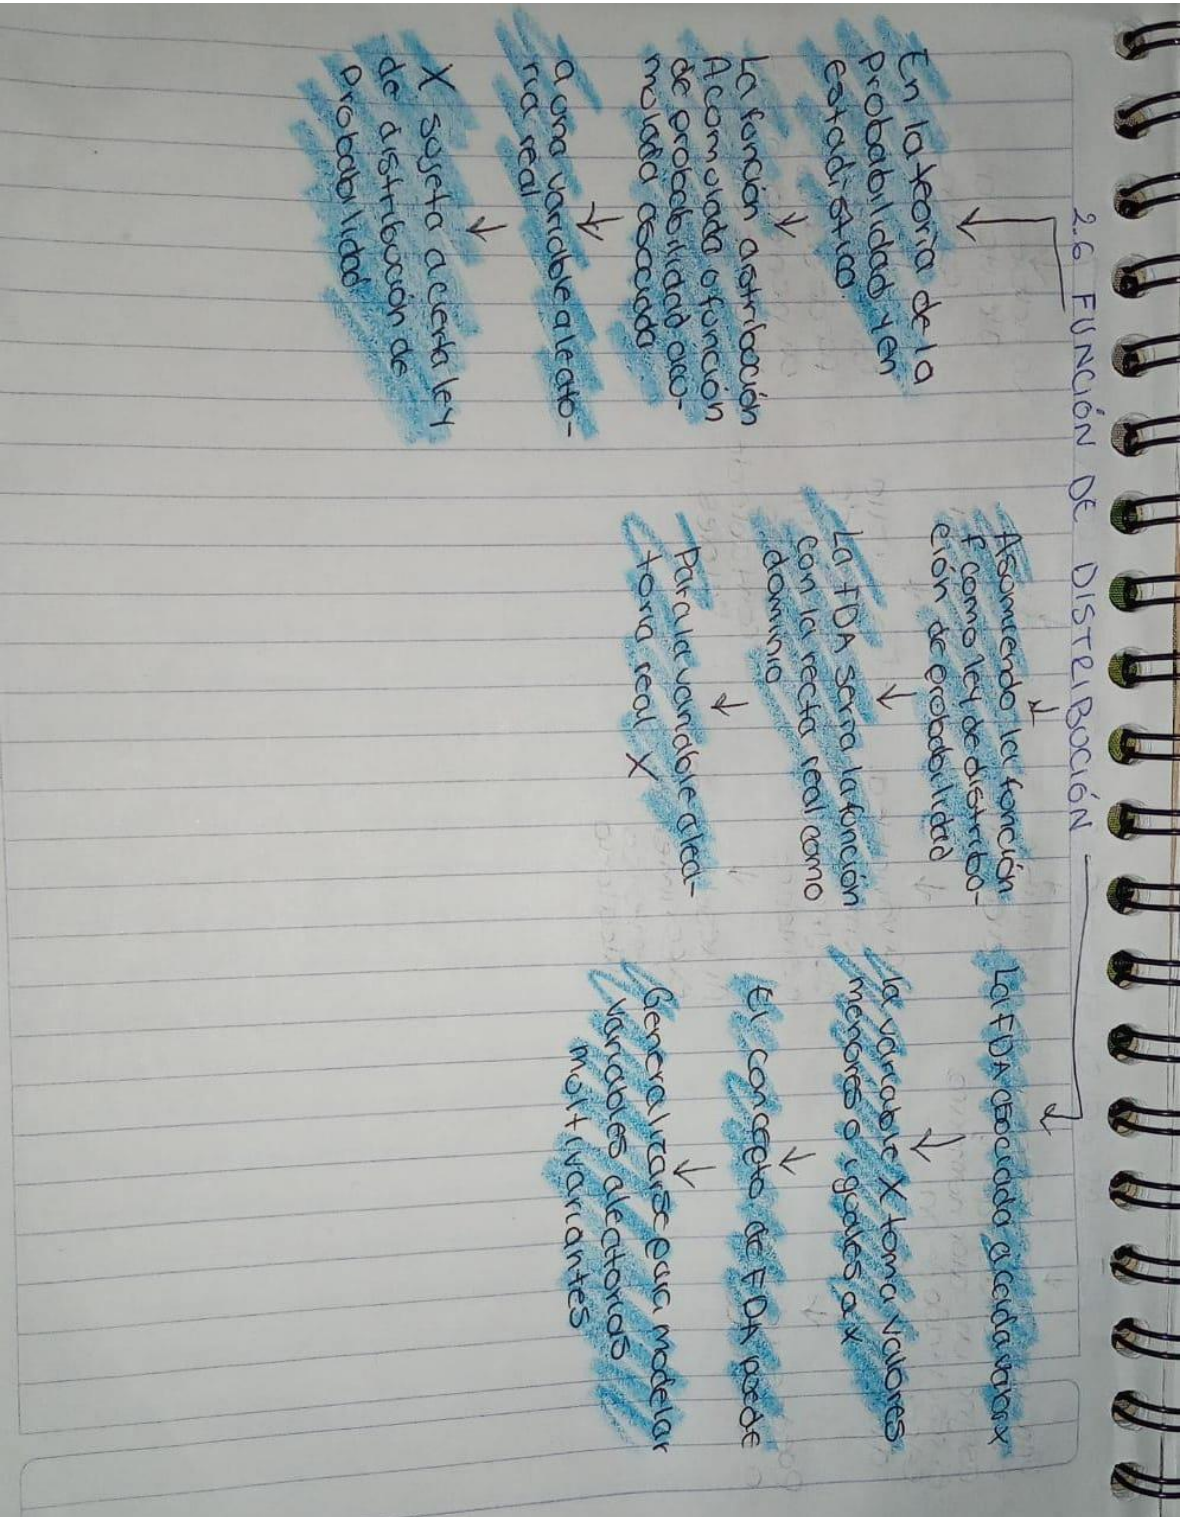 2.6 FUNCIÓN DE DISTRIBUCIÓN
En la teoría de la
probabilidad y en
estadística
La función distribución
Acomulada o función
de probabilidad acu-
mulada asociada
a una variable aleato-
ria real
X sujeta a cierta ley
de distribución de
Probabilidad
Asumiendo la función
f como ley de distribu-
ción de probabilidad
La FDA sería la función
con la recta real como
dominio
Para la variable alea-
toria real X
La FDA asociada a cada valor x
la variable X toma valores
menores o iguales a x
El concepto de FDA puede
Generalizarse para modelar
variables alectorias
multivariantes